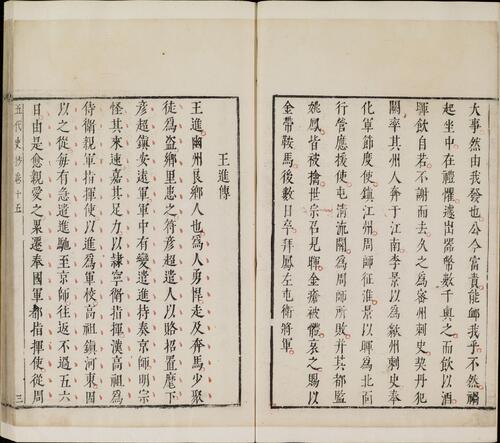 大事然由我發也公今富貴能卹我乎不然禍
起坐中在禮懼遽出器幣數千與之而飲以酒
暉飲自若不謝而去久之爲密州刺史契丹犯
闕率其州人奔于江南李景以爲歙州刺史奉
化軍節度使鎮江州周師征淮景以暉爲北面
行營應援使屯清流關爲周師所敗并其都監
姚鳳皆被擒世宗召見暉金瘡被體哀之賜以
金帶鞍馬後數日卒拜鳳左屯衛將軍
王進傳
王進幽州良鄉人也爲人勇悍走及奔馬少聚
徒爲盜鄉里患之符彥超遣人以賂招置麾下
彥超鎮安遠軍軍中有變遣進持奏京師明宗
怪其來速嘉其足力以隸寧衛指揮漢高祖爲
侍衛親軍指揮使以進爲軍校高祖鎮河東因
以之從每有急遣進馳至京師往返不過五六
日由是愈親愛之累遷奉國軍都指揮使從周
五代史抄卷十五 三